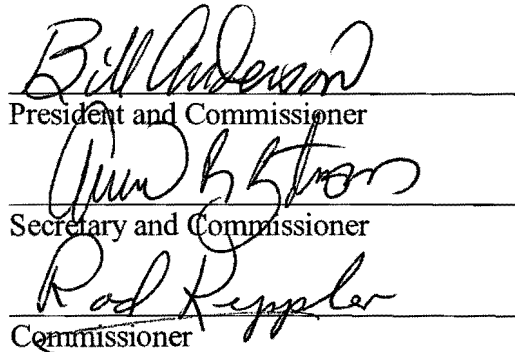 Bill Anderson
President and Commissioner
Secretary and Commissioner
Rod Reppler
Commissioner